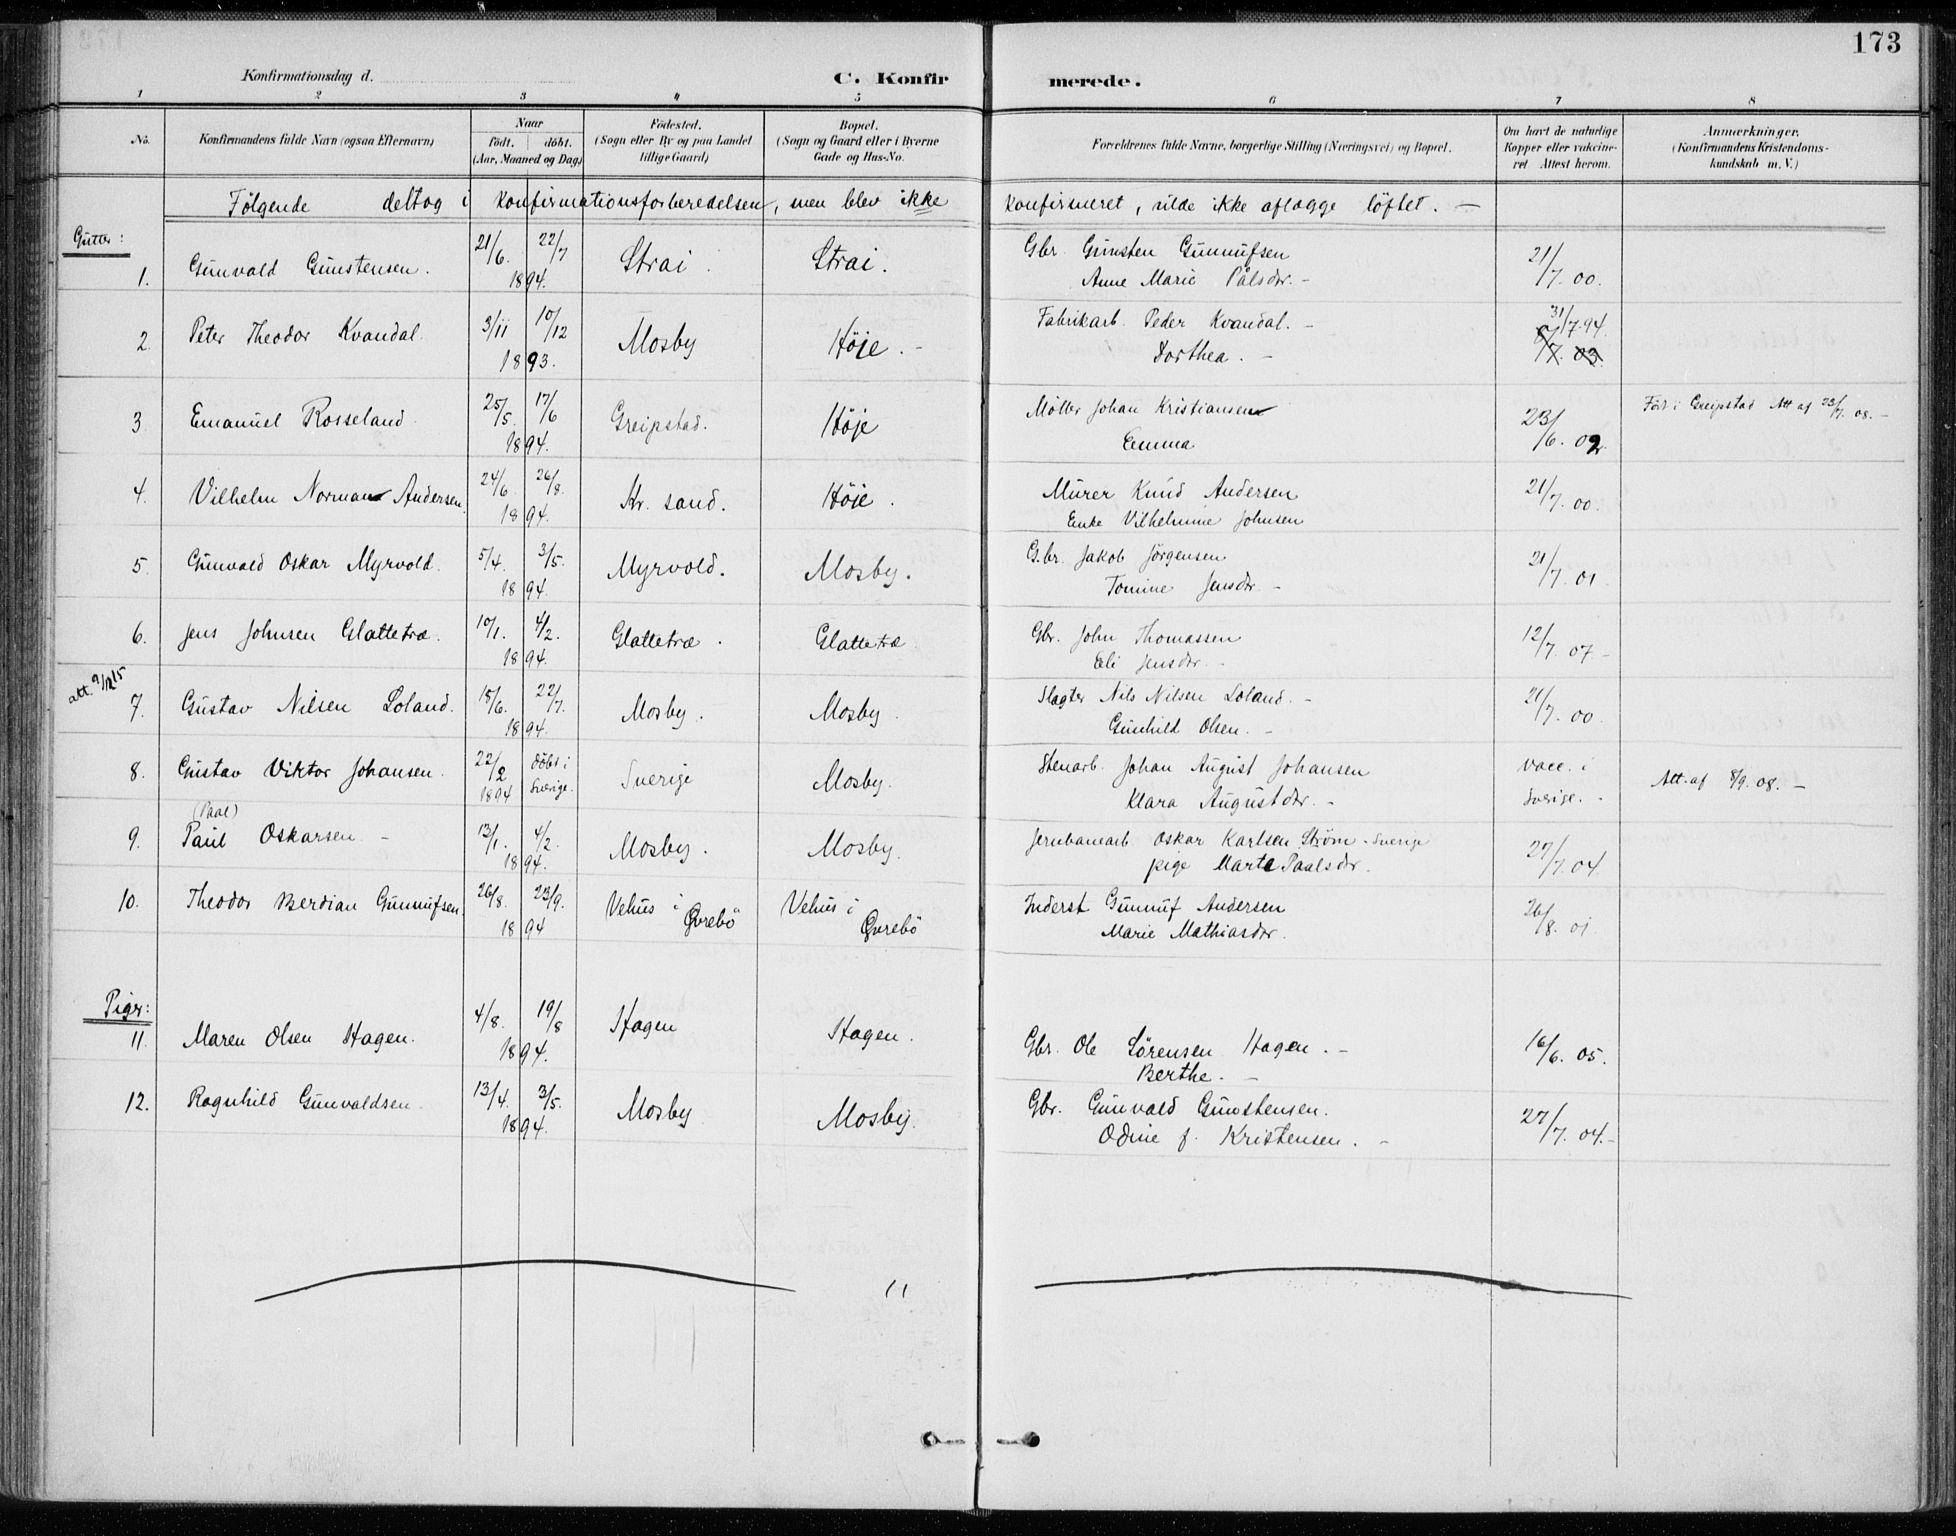 173
Konfirmationsdag d. C. Konfirmerede.
1 2 3 4 5 6 7 8
No. Konfirmandens fulde Navn (ogsaa Efternavn) Naar født. døbt. (Aar, Maaned og Dag) Fødested. (Sogn eller By og paa Landet tillige Gaard) Bopæl. (Sogn og Gaard eller i Byerne Gade og Hus-No. Forældrenes fulde Navne, borgerlige Stilling (Næringsvei) og Bopæl. Om havt de naturlige Kopper eller vakcineret Attest herom. Anmærkninger. (Konfirmandens Kristendomskundskab m. V.)
Følgende deltog i konfirmationsforberedelsen, men blev ikke konfirmeret, vilde ikke aflægge löftet. —
Gutter:
1. Gunvald Gunstensen. 21/6. 22/7 1894. Strai. Strai. Gbr. Gunsten Gunnufsen 21/7. 00.
Anne Marie Pålsdr. -
2. Peter Theodor Kvandal. 3/11 10/12 1893. Mosby Höje. - Fabrikarb. Peder Kvandal. - 31/7.94.
Dorthea. - /7. 03.
3. Emanuel Rosseland 25/5. 17/6 1894. Greipstad. Höje Møller Johan Kristiansen 23/6. 02 Föd i Greipstad Att af 23/7. 08. -
Emma
4. Vilhelm Norman Andersen. 24/6 26/8. 1894. Kr. sand. Höje. Murer Knud Andersen 21/7. 00.
Emke Vilhelmine Johnsen
5. Gunvald Oskar Myrvold. 5/4. 3/5. 1894. Myrvold. Mosby. G.br. Jakob Jörgensen 21/7. 01.
Tomine Jensdr. -
6. Jens Johnsen Glattetræ. 10/1. 4/2. 1894. Glattetræ. Glattetræ Gbr. John Thomassen 12/7. 07 -
Eli Jensdr. -
att. 9/12 15
7. Gustav Nilsen Loland. 15/6. 22/7. 1894. Mosby. Mosby. Slagter Nils Nilsen Loland. - 21/7. 00.
Gunhild Olsen. -
8. Gustav Viktor Johansen. 22/2 1894 döbt i Sverige. Sverige Mosby. Stenarb. Johan August Johansen vacc. i Sverige. - Att. af 8/9. 08. —
Klara Augustdr. -
(Paal)
9. Paul Oskarsen - 13/1. 4/2. 1894. Mosby. Mosby. Jernbanearb Oskar Karlsen Ström - Sverige 27/7.04
pige Marte Paalsdr.
10. Theodor Berdian Gunnufsen. 26/8. 23/9. 1894 Vehus i Øvrebö Vehus i Øvrebö Inderst Gunnuf Andersen 26/8. 01
Marie Mathiasdr.
Piger:
11. Maren Olsen Hagen. 4/8. 19/8 1894. Hagen Hagen. Gbr. Ole Sörensen Hagen. - 16/6. 05.
Berthe. -
12. Ragnhild Gunvaldsen. 13/4. 3/5. 1894. Mosby Mosby. Gbr. Gunvald Gunstensen. 27/7. 04. -
Odine f. Kristensen. -